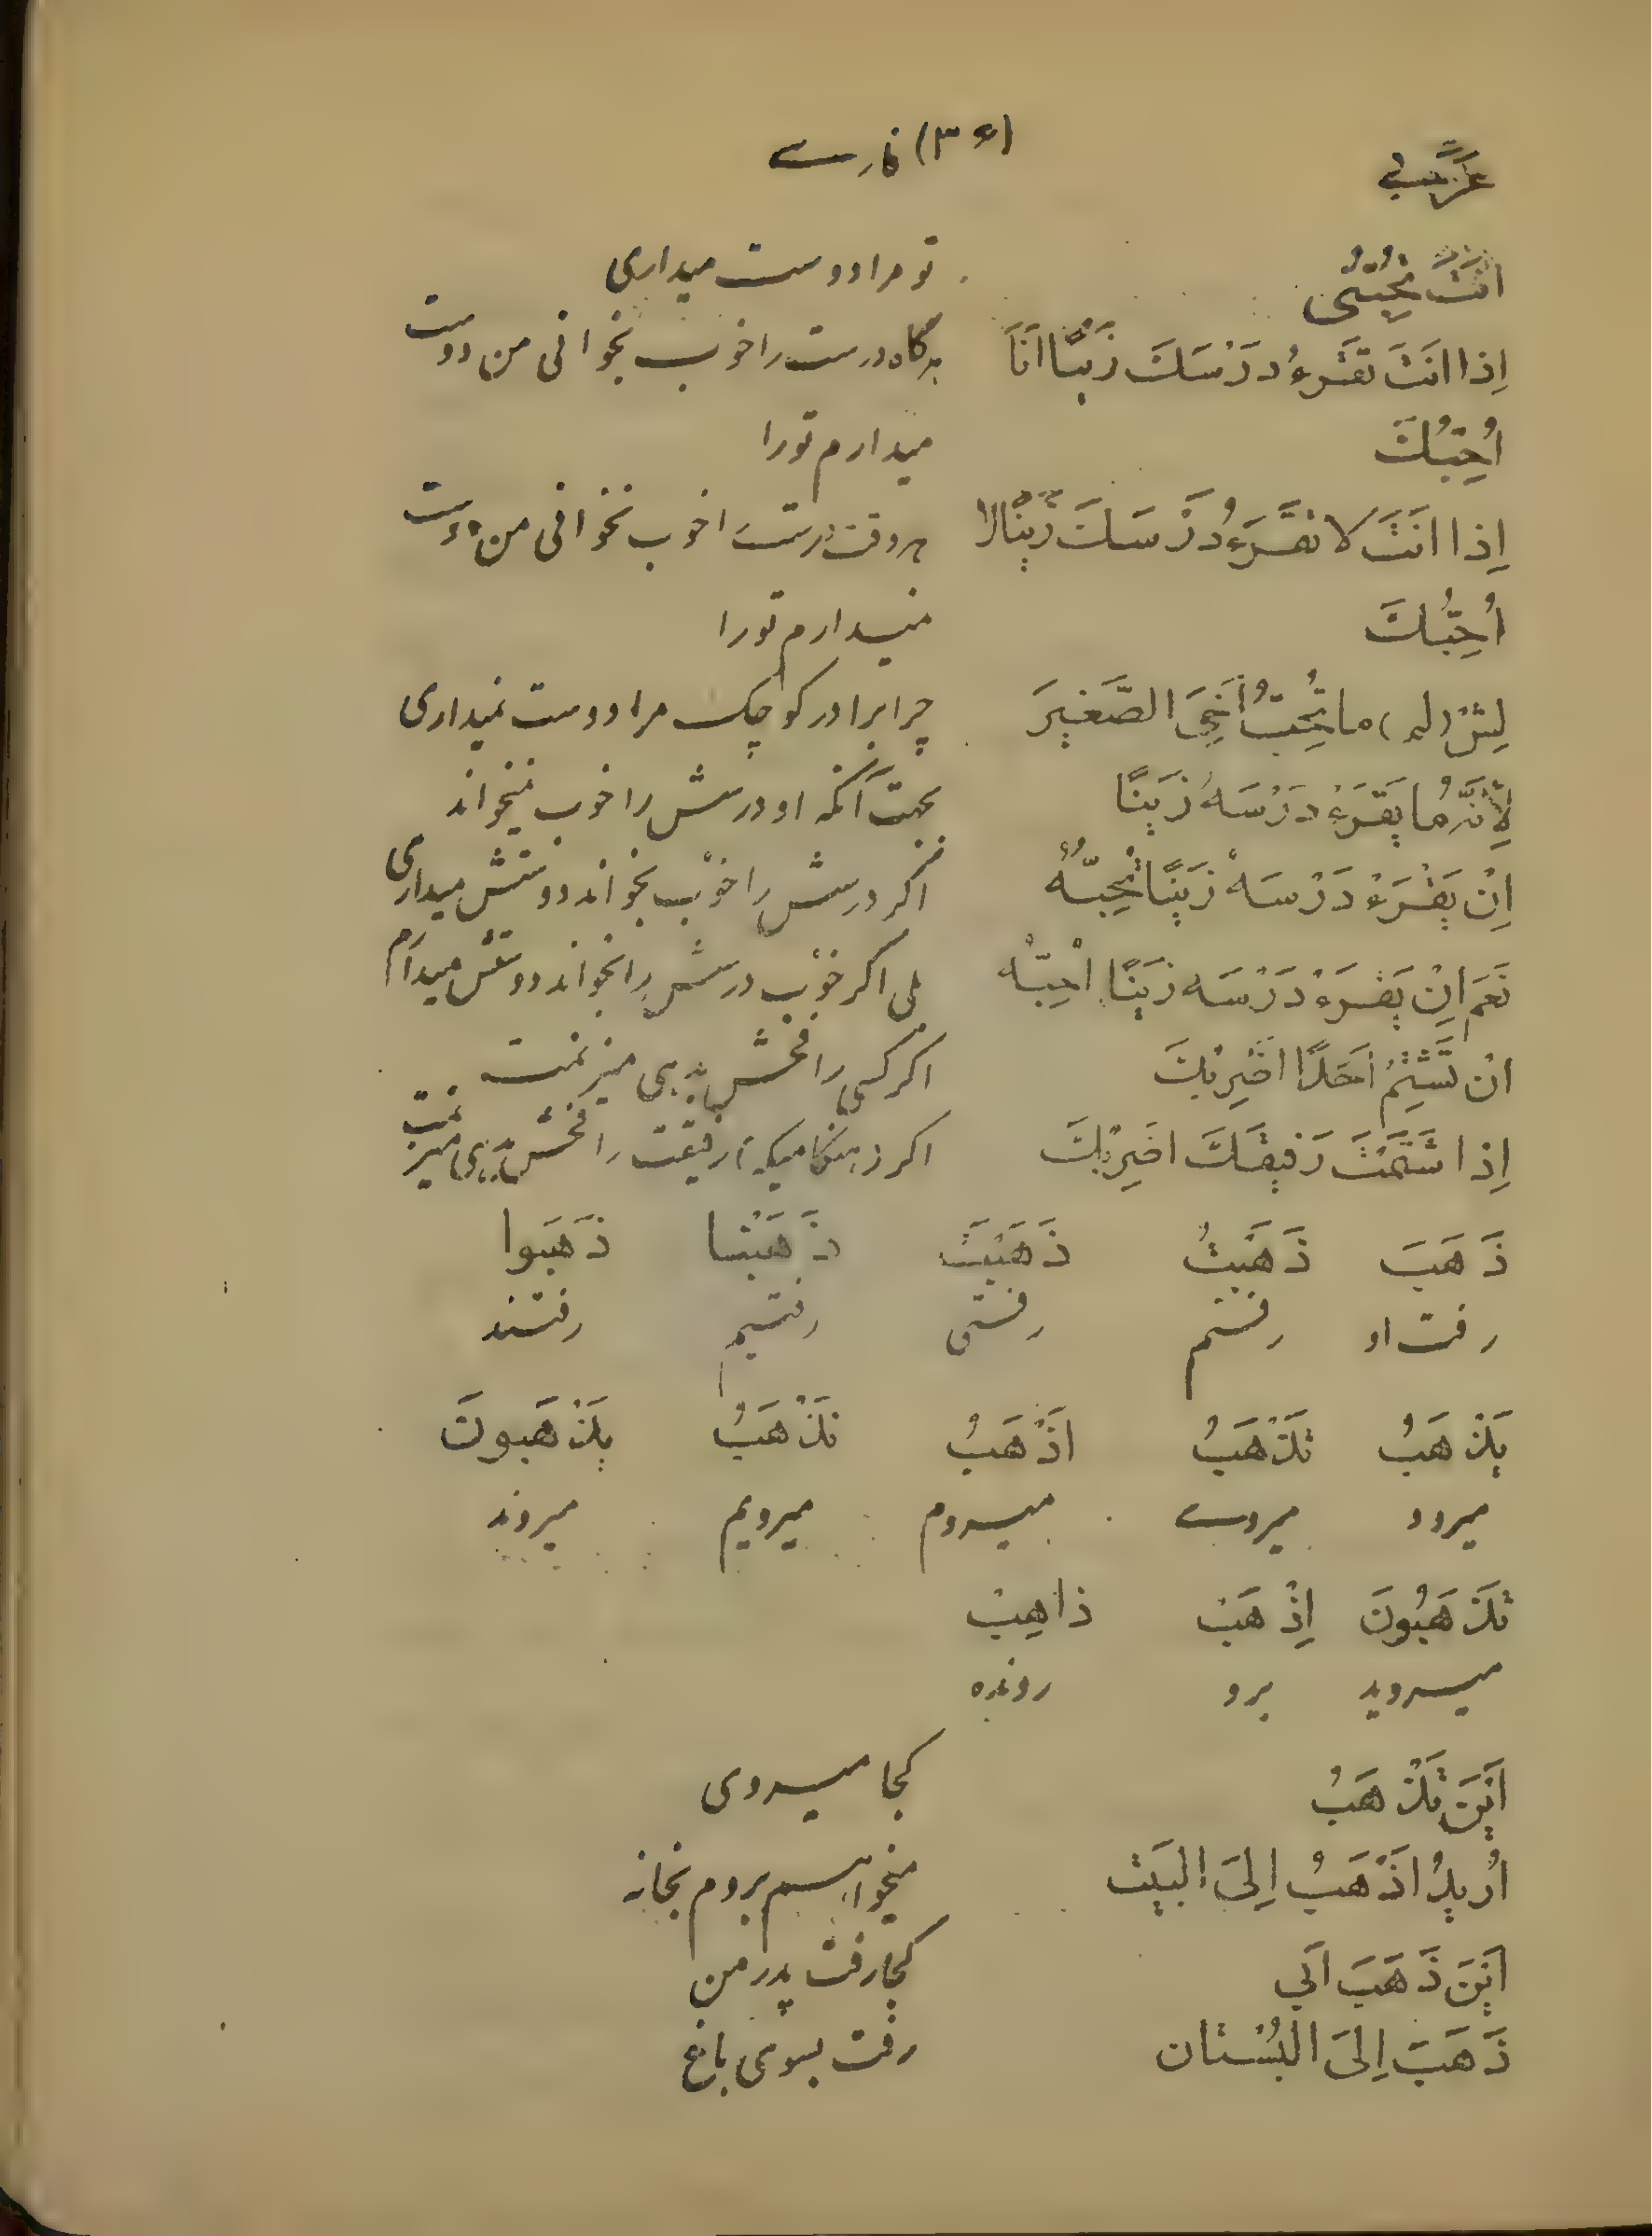 عَرَبی (۳۶) فارسے
اَنْتَ تُحِبُّنی تو مرا دوست میداری
اِذا انَتَ تَقْرَءُ دَرْسَكَ زَیْنًا اَنَا هرگاه درست را خوب بخوانی من دوست
اُحِبُّكَ میدارم تورا
اِذا انَتَ لا تَقْرَءُ دَرْسَكَ زَیْنًا لا هر وقت درست را خوب نخوانی من دوست
اُحِبُّكَ نمیدارم تورا
لِشْ (لم) ما تُحِبُّ أَخِیَ الصَّغیرَ چرا برادر کوچک مرا دوست نمیداری
لِأَنَّهُ ما یَقْرَءُ دَرْسَهُ زَیْنًا بجهت آنکه او درسش را خوب نمیخواند
اِنْ یَقْرَءْ دَرْسَهُ زَیْنًا تُحِبُّهُ اگر درسش را خوب بخواند دوستش میداری
نَعَم اِنْ یَقْرَءْ دَرْسَه زَیْنًا اُحِبّهُ بلی اگر خوب درسش را بخواند دوستش میدارم
اِنْ تَشْتِمُ اَحَدًا اَضْرِبُكَ اگر کسی را فحش بدهی میزنمت
اِذا شَتَمْتَ رَفیقَكَ اَضْرِبُكَ اگر در هنگامیکه رفیقت را فحش بدهی میزنمت
ذَهَبَ ذَهَبْتُ ذَهَبْتَ ذَهَبْنا ذَهَبوا
رفت او رفتم رفتی رفتیم رفتند
یَذْهَبُ تَذْهَبُ اَذْهَبُ نَذْهَبُ یَذْهَبونَ
میرود میروے میروم میرویم میروند
تَذْهَبُونَ اِذْهَبْ ذاهِبْ
میروید برو رونده
اَیْنَ تَذْهَبُ کجا میروی
اُریدُ اَذْهَبُ اِلیَ البَیْت میخواهم بروم بخانه
اَیْنَ ذَهَبَ اَبی کجا رفت پدر من
ذَهَبَ اِلیَ الْبُسْتان رفت بسوی باغ